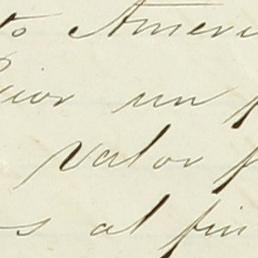 to Ameri
un
Valor
s al fin